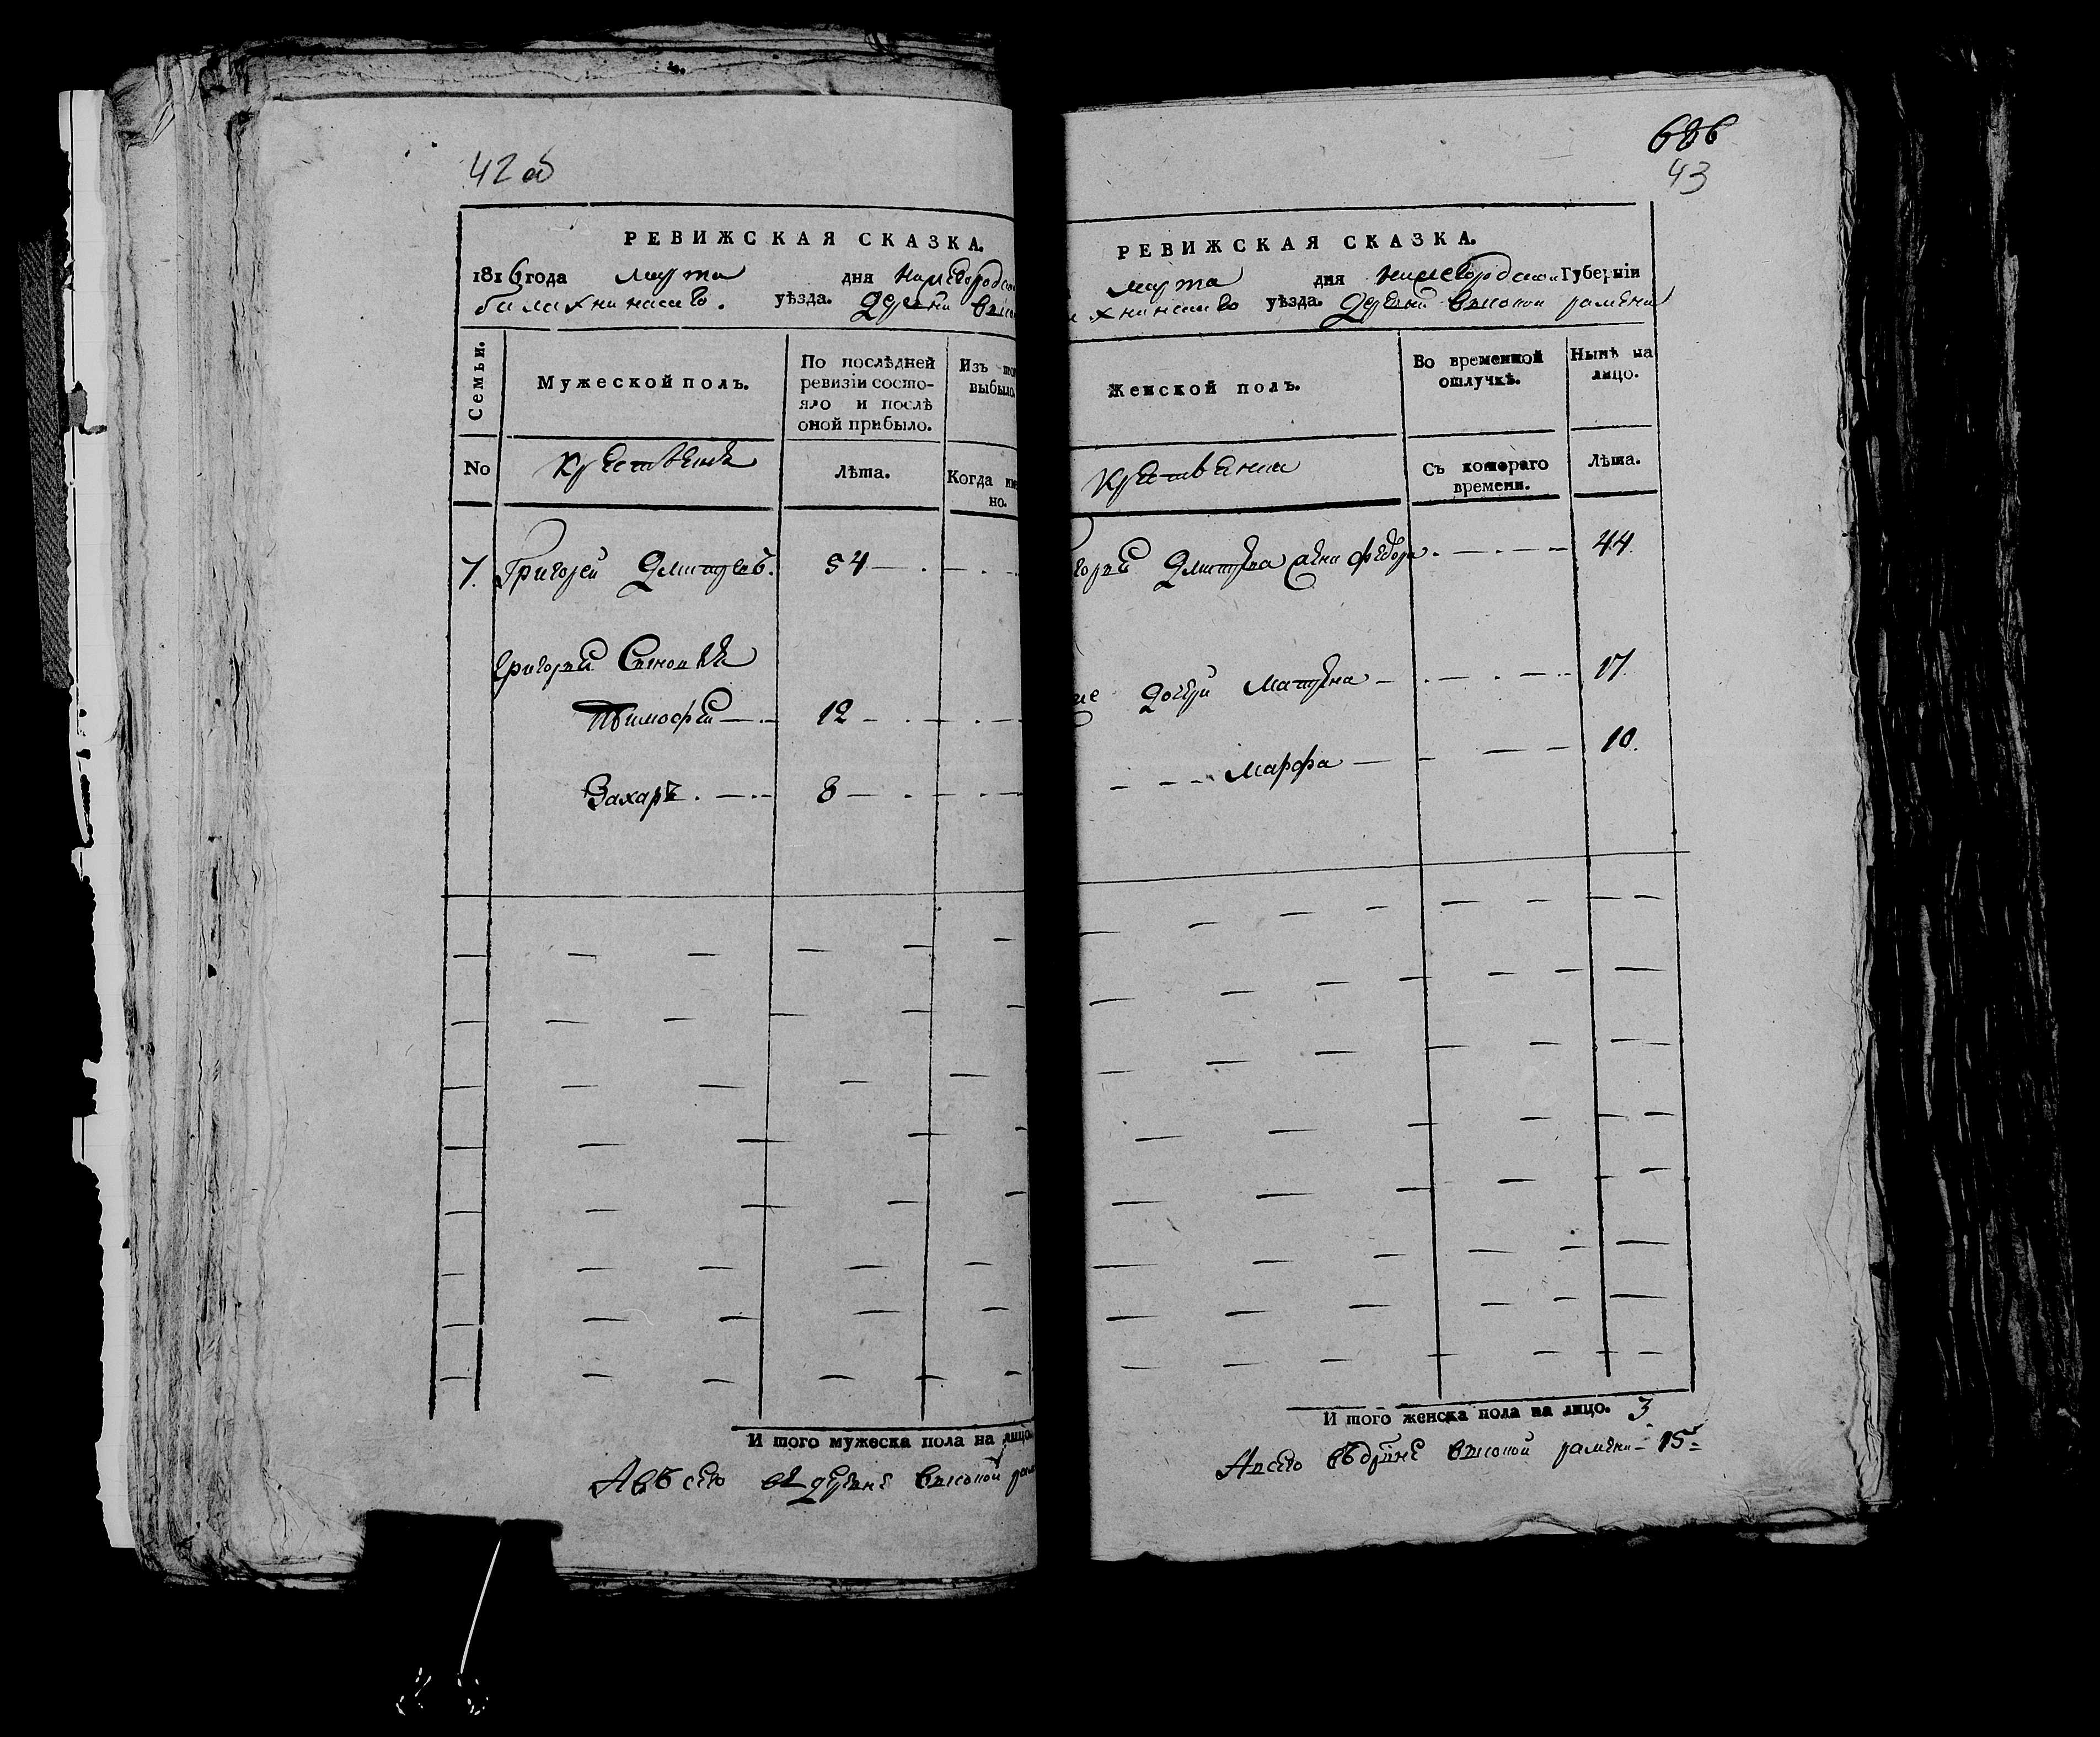 42 об
РЕВИЖСКАЯ СКАЗКА.
1816 года марта дня нижегородско
балахнинскаго. уѣзда. Деревни высо
Семьи.
Мужеской полъ.
По послѣдней
ревизіи состо-
яло и послѣ
оной прибыло.
Изъ то
выбыло
No
Крестьяня
Лѣта.
Когда име
но.
7. Григорей Дмитреевъ. 54
Григорья Сыновья
Тимофей 12
Захаръ 8
И того мужеска пола на лицо
А всего въ деревне высокой рам
686
43
РЕВИЖСКАЯ СКАЗКА.
марта дня нижегородской Губерніи
хнинскаго уѣзда. Деревни высокой рамени
Женской полъ.
Во временной
отлучкѣ.
Нынѣ на
лицо.
Крестьянки
Съ котораго
времени.
Лѣта.
горья Дмитрева жена федора 44.
ие дочери Матрена 17.
Марфа 10.
И того женска пола на лицо. 3
А всего въ дрвне высокой рамени 15